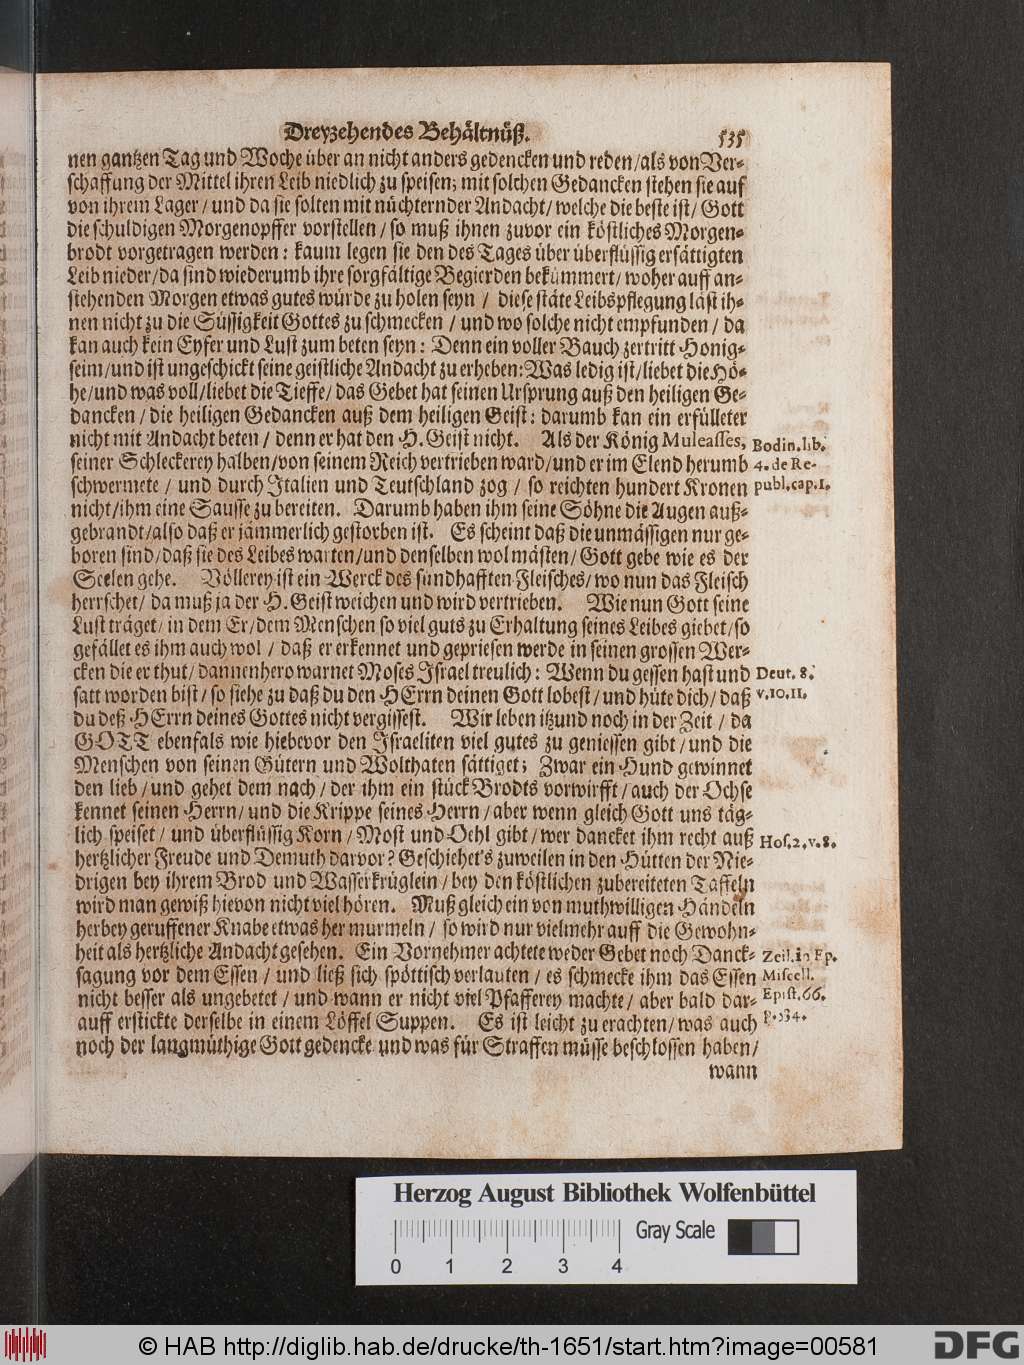 Dreyzehendes Behältnüß. 535
nen gantzen Tag und Woche über an nicht anders gedencken und reden/als von Ver-
schaffung der Mittel ihren Leib niedlich zu speisen; mit solchen Gedancken stehen sie auf
von ihrem Lager/ und da sie solten mit nüchternder Andacht/ welche die beste ist/ Gott
die schuldigen Morgenopffer vorstellen/ so muß ihnen zuvor ein köstliches Morgen-
brodt vorgetragen werden: kaum legen sie den des Tages über überflüssig ersättigten
Leib nieder/da sind wiederumb ihre sorgfältige Begierden bekümmert/ woher auff an-
stehenden Morgen etwas gutes würde zu holen seyn / diese stäte Leibspflegung läst ih-
nen nicht zu die Süssigkeit Gottes zu schmecken / und wo solche nicht empfunden / da
kan auch kein Eyfer und Lust zum beten seyn: Denn ein voller Bauch zertritt Honig-
seim/und ist ungeschickt seine geistliche Andacht zu erheben: Was ledig ist/ liebet die Hö-
he/und was voll/liebet die Tieffe/ das Gebet hat seinen Ursprung auß den heiligen Ge-
dancken / die heiligen Gedancken auß dem heiligen Geist: darumb kan ein erfülleter
nicht mit Andacht beten / denn er hat den H. Geist nicht. Als der König Muleasses,
seiner Schleckerey halben/von seinem Reich vertrieben ward/und er im Elend herumb
schwermete / und durch Italien und Teutschland zog / so reichten hundert Kronen
nicht/ihm eine Sausse zu bereiten. Darumb haben ihm seine Söhne die Augen auß-
gebrandt/also daß er jämmerlich gestorben ist. Es scheint daß die unmässigen nur ge-
boren sind/daß sie des Leibes warten/und denselben wol mästen/ Gott gebe wie es der
Seelen gehe. Völlerey ist ein Werck des sündhafften Fleisches/ wo nun das Fleisch
herrschet/ da muß ja der H. Geist weichen und wird vertrieben. Wie nun Gott seine
Lust träget/ in dem Er/dem Menschen so viel guts zu Erhaltung seines Leibes giebet/so
gefället es ihm auch wol / daß er erkennet und gepriesen werde in seinen grossen Wer-
cken die er thut/ dannenhero warnet Moses Israel treulich: Wenn du gessen hast und
satt worden bist/ so siehe zu daß du den HErrn deinen Gott lobest/ und hüte dich/ daß
du deß HErrn deines Gottes nicht vergissest. Wir leben itzund noch in der Zeit / da
GOTT ebenfals wie hiebevor den Israeliten viel gutes zu geniessen gibt/und die
Menschen von seinen Gütern und Wolthaten sättiget; Zwar ein Hund gewinnet
den lieb/ und gehet dem nach/ der ihm ein stück Brodts vorwirfft/ auch der Ochse
kennet seinen Herrn/ und die Krippe seines Herrn/ aber wenn gleich Gott uns täg-
lich speiset / und überflüssig Korn/ Most und Oehl gibt/ wer dancket ihm recht auß
hertzlicher Freude und Demuth darvor? Geschiehet's zuweilen in den Hütten der Nie-
drigen bey ihrem Brod und Wasserkrüglein/ bey den köstlichen zubereiteten Taffeln
wird man gewiß hievon nicht viel hören. Muß gleich ein von muthwilligen Händeln
herbey geruffener Knabe etwas her murmeln/ so wird nur vielmehr auff die Gewohn-
heit als hertzliche Andacht gesehen. Ein Vornehmer achtete weder Gebet noch Danck-
sagung vor dem Essen / und ließ sich spöttisch verlauten / es schmecke ihm das Essen
nicht besser als ungebetet / und wann er nicht viel Pfafferey machte/ aber bald dar-
auff erstickte derselbe in einem Löffel Suppen. Es ist leicht zu erachten/ was auch
noch der langmüthige Gott gedencke und was für Straffen müsse beschlossen haben/
wann
Bodin. lib.
4. de Re-
publ. cap. 1.
Deut. 8.
v. 10. 11.
Hos. 2. v. 8.
Zeil. in Ep.
Miscell.
Epist. 66.
p. 534.
Herzog August Bibliothek Wolfenbüttel
Gray Scale
0 1 2 3 4
© HAB http://diglib.hab.de/drucke/th-1651/start.htm?image=00581
DFG